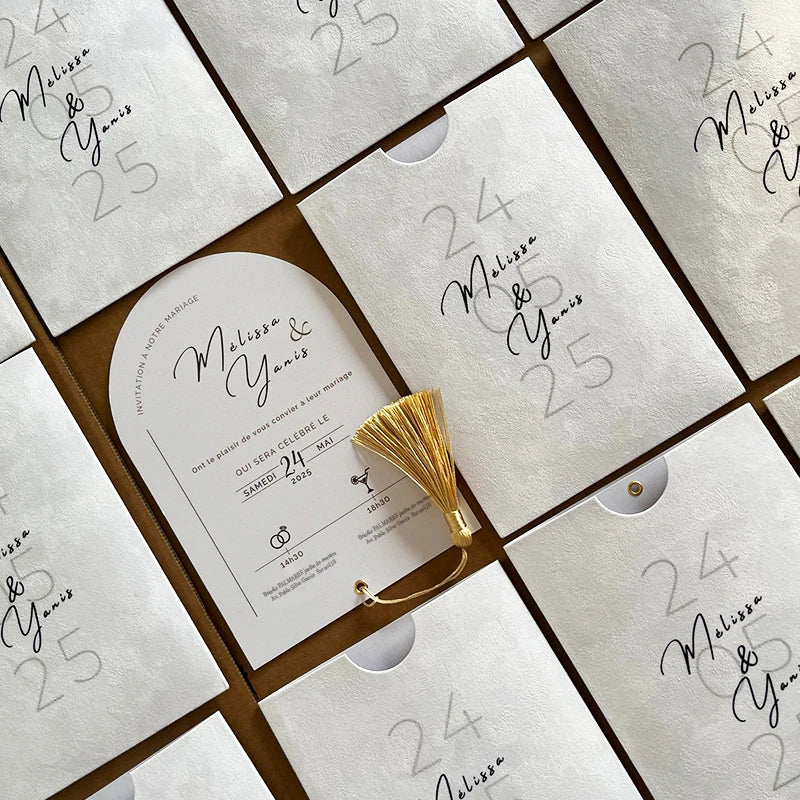 INVITATION À NOTRE MARIAGE
Mélissa &
Yanis
Ont le plaisir de vous convier à leur mariage
QUI SERA CÉLÉBRE LE
SAMEDI 24 MAI
2025
18h30
14h30
24
05
25
Mélissa
&
Yanis
24
05
25
Mélissa
&
Yanis
25
24
05
Mélissa
&
24
05
Mélissa
&
24
Mélissa
&
Yanis
25